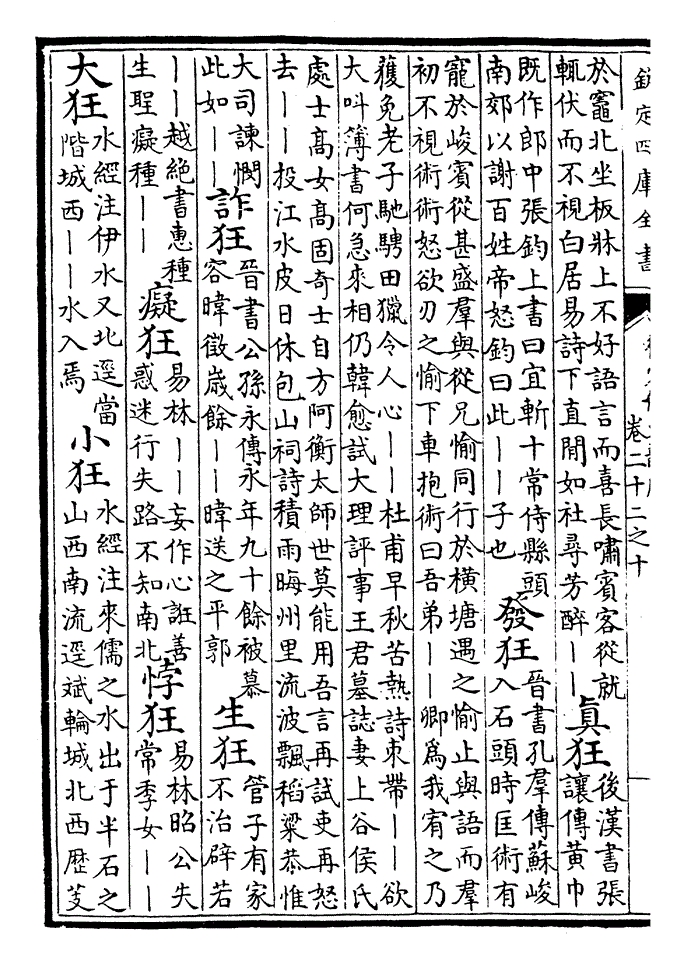 欽定四庫全書
卷二十二之十
於竈北坐板牀上不好語言而喜長嘯賓客從就
輒伏而不視白居易詩下直閒如社尋芳醉｜｜
眞狂
後漢書張
讓傳黃巾
既作郎中張鈞上書曰宜斬十常侍縣頭
南郊以謝百姓帝怒鈞曰此｜｜子也
發狂
晉書孔羣傳蘇峻
入石頭時匡術有
寵於峻賓從甚盛羣與從兄愉同行於橫塘遇之愉止與語而羣
初不視術術怒欲刃之愉下車抱術曰吾弟｜｜卿為我宥之乃
獲免老子馳騁田獵令人心｜｜杜甫早秋苦熱詩束帶｜｜欲
大呌簿書何急來相仍韓愈試大理評事王君墓誌妻上谷侯氏
處士高女高固奇士自方阿衡太師世莫能用吾言再試吏再怒
去｜｜投江水皮日休包山祠詩積雨晦州里流波飄稻粱恭惟
大司諫憫
此如｜｜
詐狂
晉書公孫永傳永年九十餘被慕
容暐徵歲餘｜｜暐送之平郭
生狂
管子有家
不治辟若
｜｜越絕書惠種
生聖癡種｜｜
癡狂
易林｜｜妄作心誑善
惑迷行失路不知南北
悖狂
易林昭公失
常季女｜｜
大狂
水經注伊水又北逕當
階城西｜｜水入焉
小狂
水經注來儒之水出于半石之
山西南流逕斌輪城北西歷芰